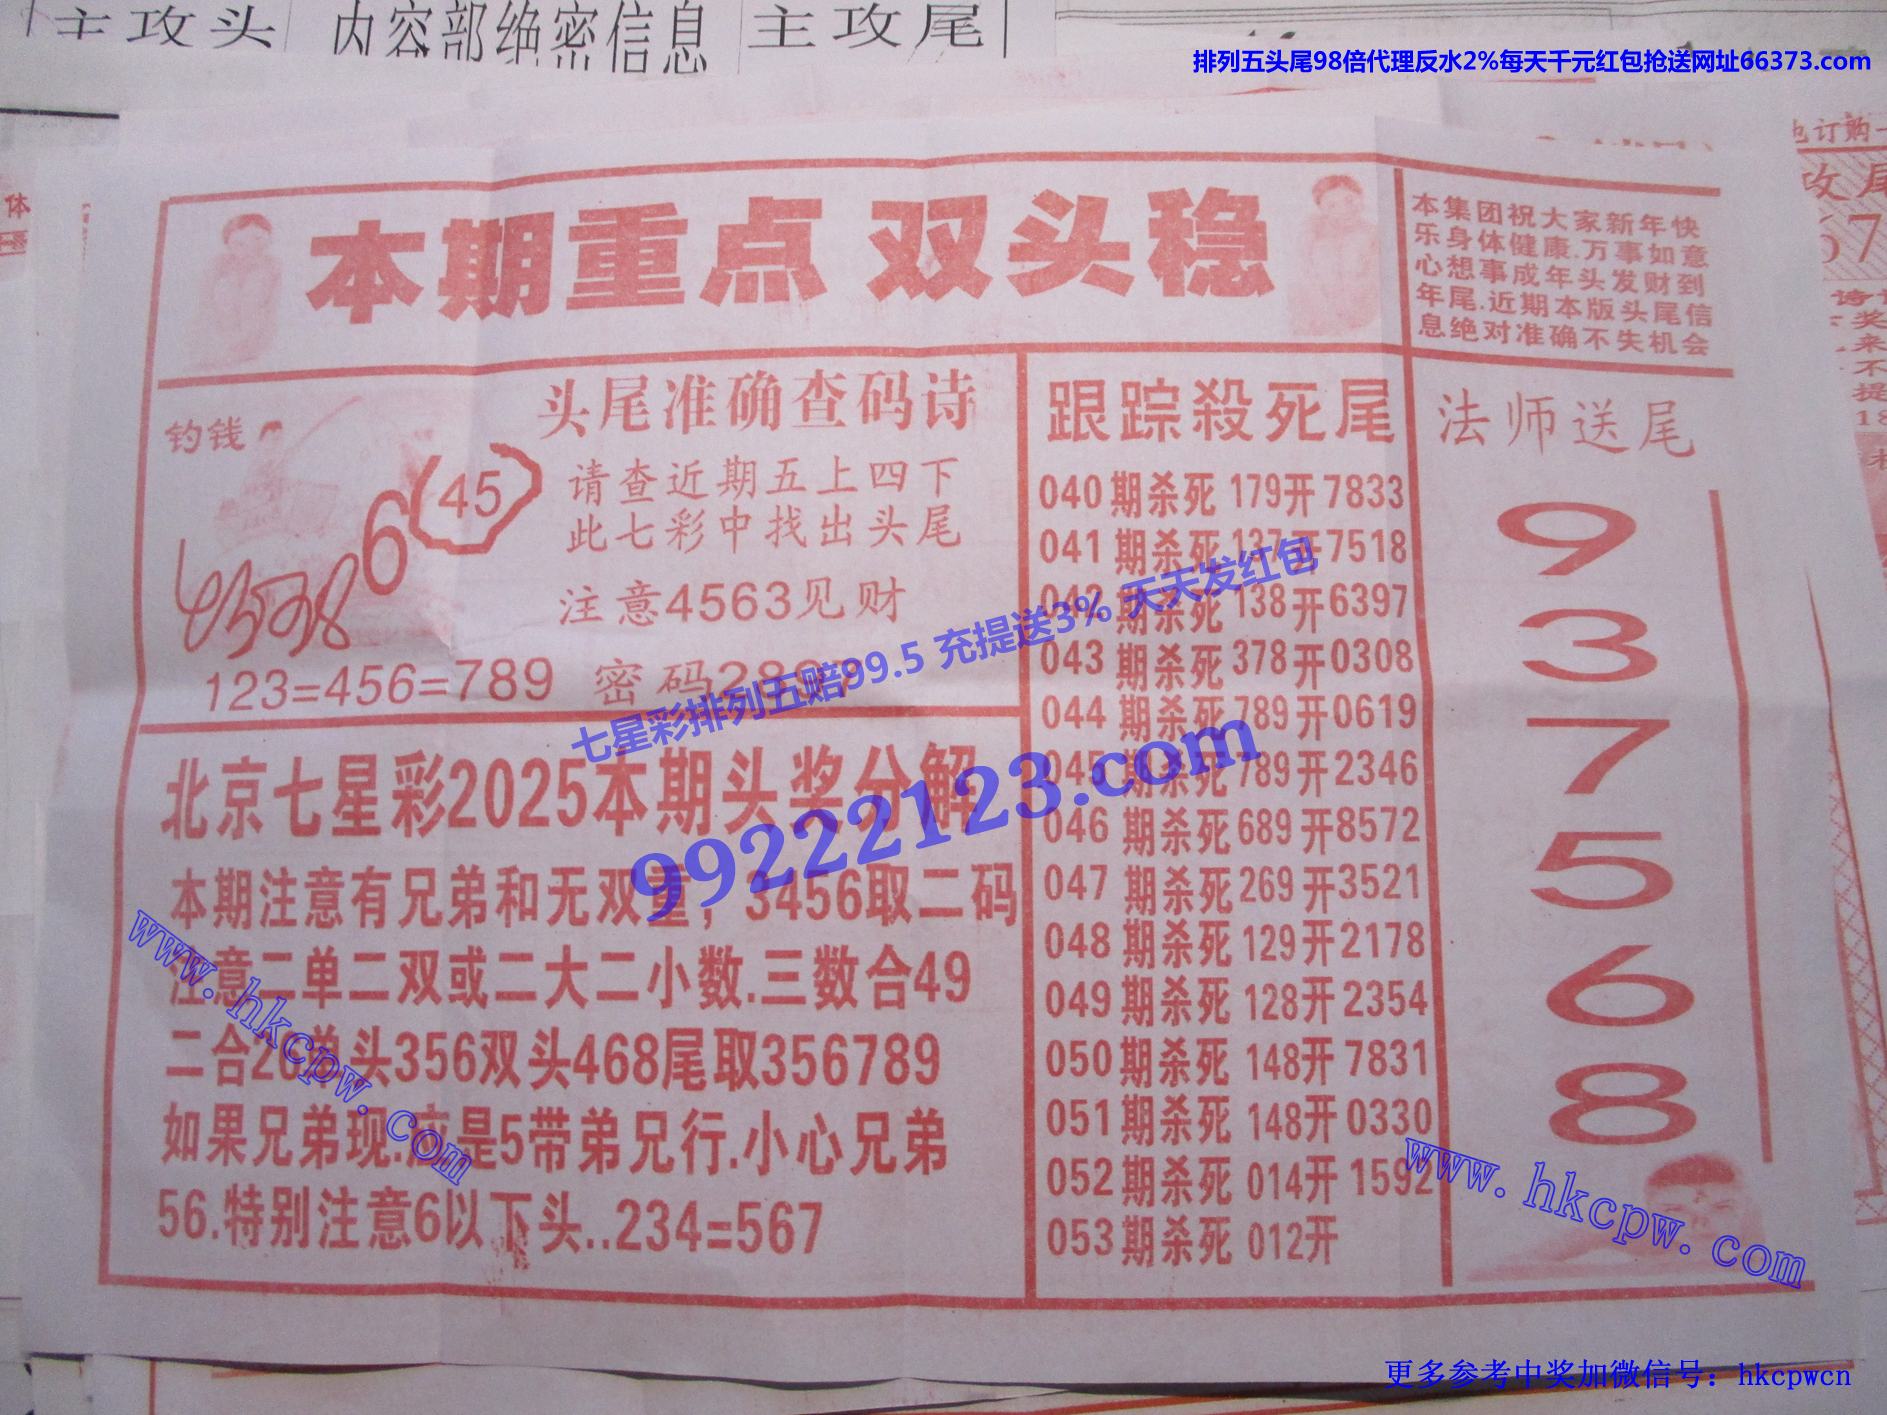 主攻头
内容部绝密信息
主攻尾
排列五头尾98倍代理反水2%每天千元红包抢送网址66373.com
本期重点 双头稳
本集团祝大家新年快
乐身体健康.万事如意
心想事成年头发财到
年尾.近期本版头尾信
息绝对准确不失机会
钓钱
6
(45)
123=456=789 密码
头尾准确查码诗
请查近期五上四下
此七彩中找出头尾
注意4563见财
七星彩排列五赔99.5 充提送3% 天天发红包
99222123.com
北京七星彩2025本期头奖分解
本期注意有兄弟和无双重，3456取二码
注意二单二双或二大二小数.三数合49
二合26单头356双头468尾取356789
如果兄弟现.应是5带弟兄行.小心兄弟
56.特别注意6以下头..234=567
跟踪殺死尾
040期杀死179开7833
041期杀死137开7518
042期杀死138开6397
043期杀死378开0308
044期杀死789开0619
045期杀死789开2346
046期杀死689开8572
047期杀死269开3521
048期杀死129开2178
049期杀死128开2354
050期杀死148开7831
051期杀死148开0330
052期杀死014开1592
053期杀死012开
法师送尾
9
3
7
5
6
8
www.hkcpw.com
www.hkcpw.com
订购
攻尾
67
更多参考中奖加微信号：hkcpwcn